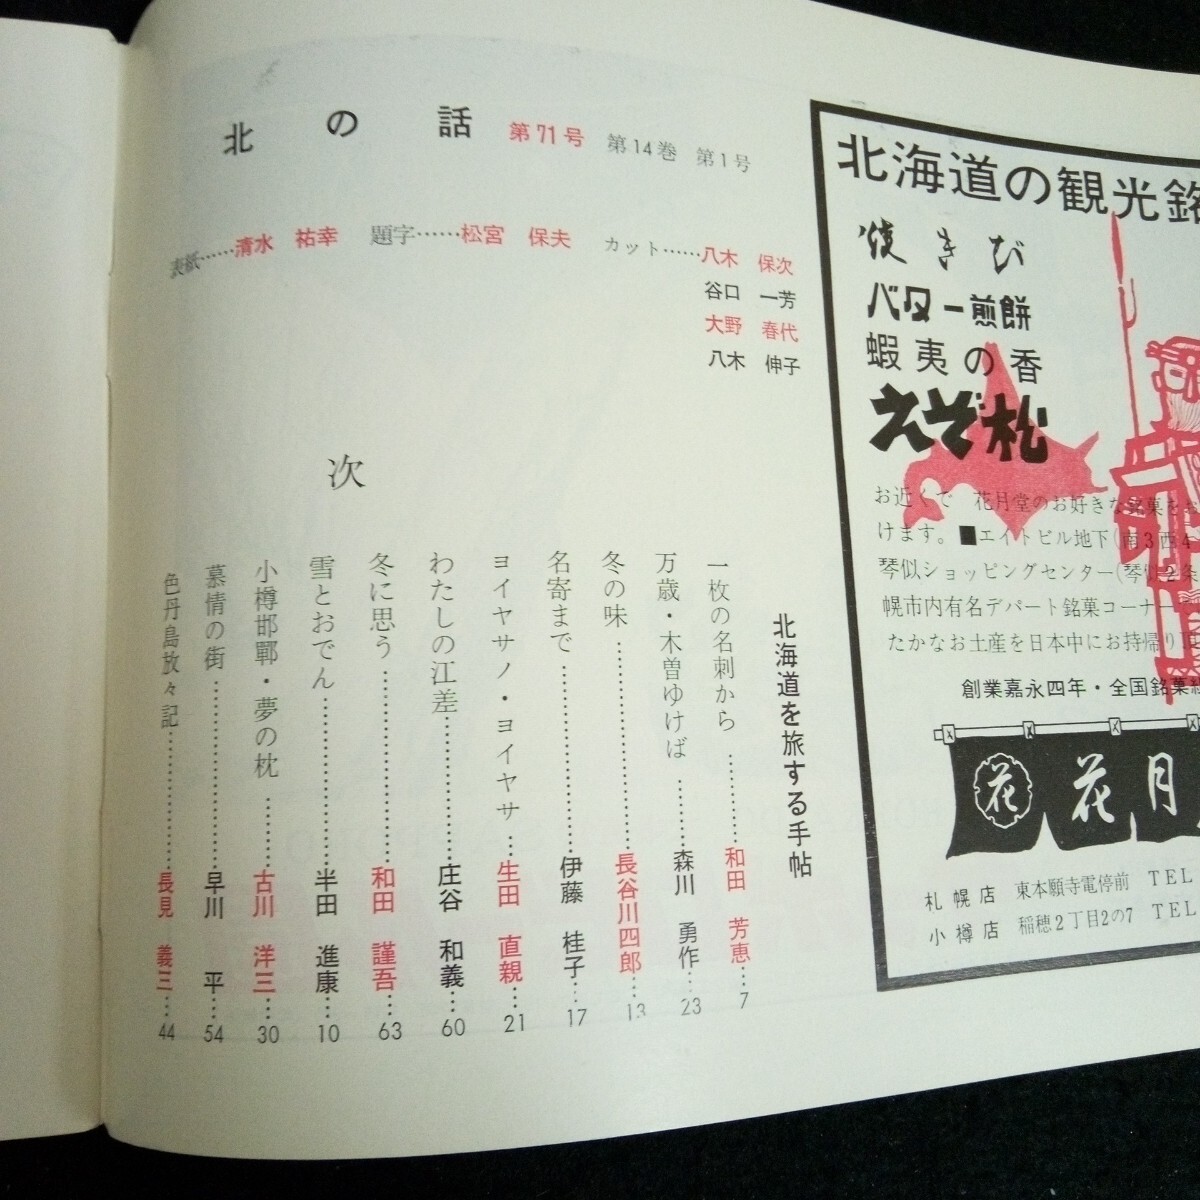 北の話 第71号 第14巻 第1号
表紙……清水 祐幸 題字……松宮 保夫 カット……八木 保次
谷口 一芳
大野 春代
八木 伸子
次
北海道を旅する手帖
一枚の名刺から…………和田 芳恵…7
万歳・木曽ゆけば…………森川 勇作…23
冬の味…………長谷川四郎…13
名寄まで…………伊藤 桂子…17
ヨイヤサノ・ヨイヤサ…生田 直親…21
わたしの江差…………庄谷 和義…60
冬に思う…………和田 謹吾…63
雪とおでん…………半田 進康…10
小樽邯鄲・夢の枕…………古川 洋三…30
慕情の街…………早川 平…54
色丹島放々記…………長見 義三…44
北海道の観光銘
焼きび
バター煎餅
蝦夷の香
えぞ松
お近くで 花月堂のお好きな銘菓を
けます。■エイトビル地下(南3西4
琴似ショッピングセンター(琴似2条
幌市内有名デパート銘菓コーナー
たかなお土産を日本中にお持帰り頂
創業嘉永四年・全国銘菓
花 花月
札幌店 東本願寺電停前 TEL
小樽店 稲穂2丁目2の7 TEL